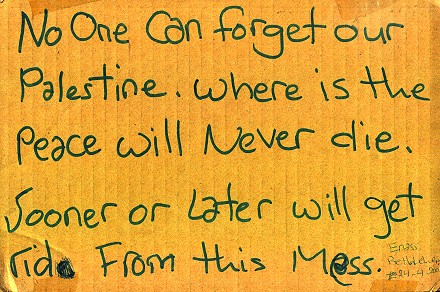 No One Can forget our
Palestine. where is the
Peace will Never die.
Sooner or Later will get
rid From this Mess.
Enas
24-4-200